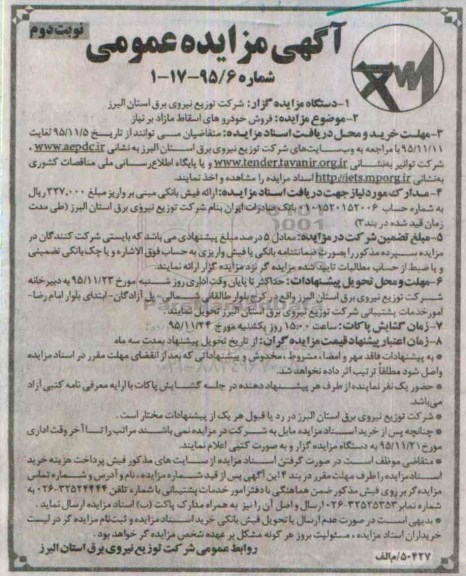 نوبت دوم
آگهی مزایده عمومی
شماره ۹۵/۶-۱۷-۱
۱-دستگاه مزایده گزار: شرکت توزیع نیروی برق استان البرز
۲-موضوع مزایده: فروش خودرو های اسقاط مازاد بر نیاز
۳-مهلت خرید و محل دریافت اسناد مزایده: متقاضیان می توانند از تاریخ ۹۵/۱۱/۵ لغایت
۹۵/۱۱/۱۱ با مراجعه به وب سایت های شرکت توزیع نیروی برق استان البرز به نشانی www.aepdc.ir ،
شرکت توانیر به نشانی www.tender.tavanir.org.ir و یا پایگاه اطلاع رسانی ملی مناقصات کشوری
به نشانی http://iets.mporg.ir اسناد مزایده را مشاهده و اخذ نمایند.
۴-مدارک مورد نیاز جهت دریافت اسناد مزایده: ارائه فیش بانکی مبنی بر واریز مبلغ ۳۳۷,۰۰۰ ریال
به شماره حساب ۰۹۰۱۵۲۰۱۵۲۰۰۶ بانک صادرات ایران بنام شرکت توزیع نیروی برق استان البرز (طی مدت
زمان قید شده در بند ۳)
۵-مبلغ تضمین شرکت در مزایده: معادل ۵ درصد مبلغ پیشنهادی می باشد که بایستی شرکت کنندگان در
مزایده سپرده مذکور را بصورت ضمانتنامه بانکی یا فیش واریزی به حساب فوق الاشاره و یا چک بانکی تضمینی
و یا ضبط از حساب مطالبات تایید شده مزایده گر نزد مزایده گزار ارائه نمایند.
۶-مهلت و محل تحویل پیشنهادات: حداکثر تا پایان وقت اداری روز شنبه مورخ ۹۵/۱۱/۲۳ به دبیرخانه
شرکت توزیع نیروی برق استان البرز واقع در کرج بلوار طالقانی شمالی-پل آزادگان-ابتدای بلوار امام رضا-
امور خدمات پشتیبانی شرکت توزیع نیروی برق استان البرز تحویل نمایند.
۷-زمان گشایش پاکات: ساعت ۱۵:۰۰ روز یکشنبه مورخ ۹۵/۱۱/۲۴
۸-زمان اعتبار پیشنهاد قیمت مزایده گران: از تاریخ تحویل پیشنهاد بمدت سه ماه
* به پیشنهادات فاقد مهر و امضاء، مشروط، مخدوش و پیشنهاداتی که بعد از انقضای مهلت مقرر در اسناد مزایده
واصل شود مطلقاً ترتیب اثر داده نخواهد شد.
* حضور یک نفر نماینده از طرف هر پیشنهاد دهنده در جلسه گشایش پاکات با ارایه معرفی نامه کتبی آزاد
می باشد.
* شرکت توزیع نیروی برق استان البرز در رد یا قبول هر یک از پیشنهادات مختار است.
* چنانچه پس از خرید اسناد مزایده مایل به شرکت در مزایده نمی باشند مراتب را تا آخر وقت اداری
مورخ ۹۵/۱۱/۲۱ به دستگاه مزایده گزار و به صورت کتبی اعلام نمایند.
* متقاضی موظف است در صورت گرفتن اسناد مزایده از سایت های مذکور فیش پرداخت هزینه خرید
اسناد مزایده را ظرف مهلت مقرر در بند ۳ این آگهی پس از قید شماره مزایده، نام و آدرس و شماره تماس
مزایده گر بر روی فیش مذکور ضمن هماهنگی با دفتر امور خدمات پشتیبانی با شماره تلفن ۳۲۵۲۴۴۴۴-۰۲۶ به
شماره نمابر ۳۲۵۲۵۳۵۳-۰۲۶ ارسال و اصل آن را نیز به همراه مدارک پاکت (ب) اسناد مزایده ارسال نماید.
* بدیهی است در صورت عدم ارسال یا تحویل فیش بانکی خرید اسناد مزایده و ثبت نام مزایده گر در لیست
خریداران اسناد مزایده، مسئولیت بروز هر گونه مشکل بر عهده شخص مزایده گر خواهد بود.
روابط عمومی شرکت توزیع نیروی برق استان البرز
۵۰۴۲۷/م الف